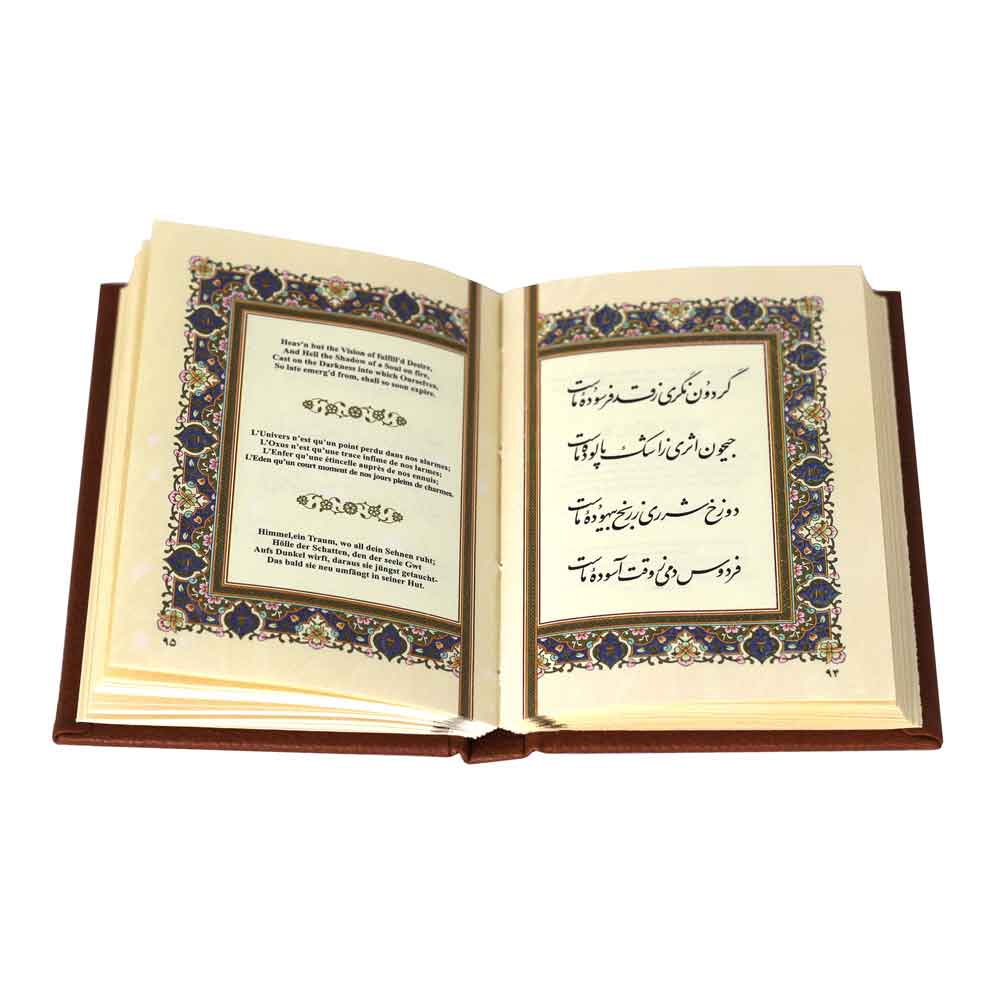 گردون نگری ز قد فرسودهٔ ماست
جیحون اثری ز اشک پالودهٔ ماست
دوزخ شرری ز رنج بیهودهٔ ماست
فردوس دمی ز وقت آسودهٔ ماست
۹۴
Heav'n but the Vision of fulfill'd Desire,
And Hell the Shadow of a Soul on fire,
Cast on the Darkness into which Ourselves,
So late emerg'd from, shall so soon expire.
L'Univers n'est qu'un point perdu dans nos alarmes;
L'Oxus n'est qu'une trace infime de nos larmes;
L'Enfer qu'une étincelle auprès de nos ennuis;
L'Eden qu'un court moment de nos jours pleins de charmes.
Himmel,ein Traum, wo all dein Sehnen ruht;
Hölle der Schatten, den der seele Gwt
Aufs Dunkel wirft, daraus sie jüngst getaucht-
Das bald sie neu umfängt in seiner Hut.
۹۵